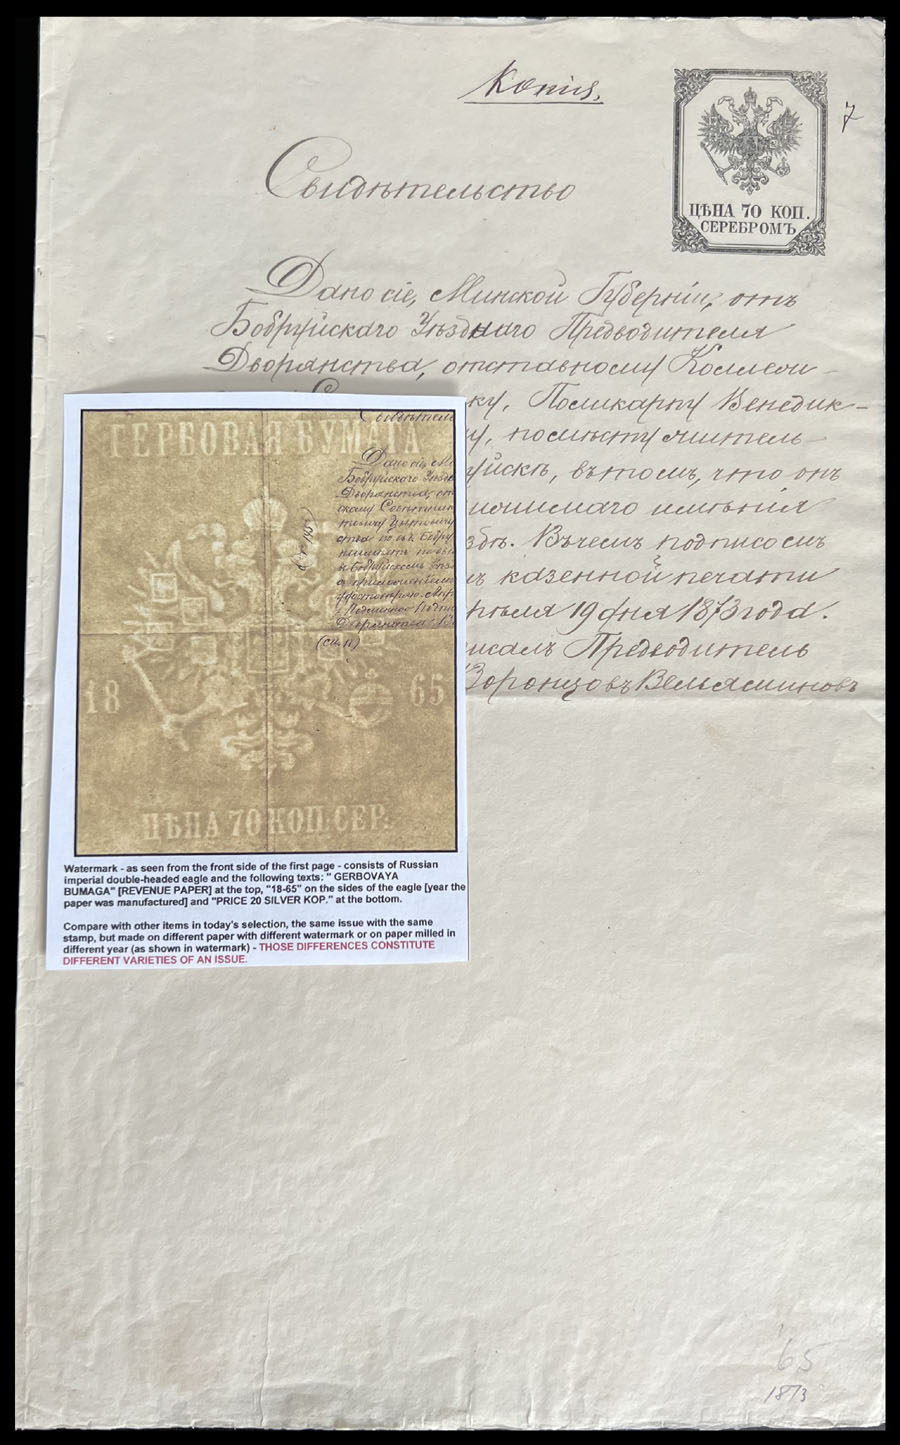 Копія.
7
Свидѣтельство
ЦѢНА 70 КОП.
СЕРЕБРОМЪ
Дано сіе, Минской Губерніи, отъ
Бобруйскаго Уѣзднаго Предводителя
Дворянства, отставному Коллеж-
ку, Поликарпу Венедик-
у, помѣсту житель-
уйскѣ, въ томъ, что онъ
имѣнія
здѣ. Въ чемъ подписомъ
казенной печати
рѣля 19 дня 1873 года.
исалъ Предводитель
Воронцовъ Вельяминовъ
ГЕРБОВАЯ БУМАГА
свидѣтель
Дано сіе, Ми
Бобруйскаго Уѣзд
Дворянства, от
скому Совѣтник
18 65
ЦѢНА 70 КОП. СЕР.
Watermark - as seen from the front side of the first page - consists of Russian
imperial double-headed eagle and the following texts: " GERBOVAYA
BUMAGA" [REVENUE PAPER] at the top, "18-65" on the sides of the eagle [year the
paper was manufactured] and "PRICE 20 SILVER KOP." at the bottom.
Compare with other items in today's selection, the same issue with the same
stamp, but made on different paper with different watermark or on paper milled in
different year (as shown in watermark) - THOSE DIFFERENCES CONSTITUTE
DIFFERENT VARIETIES OF AN ISSUE.
65
1873